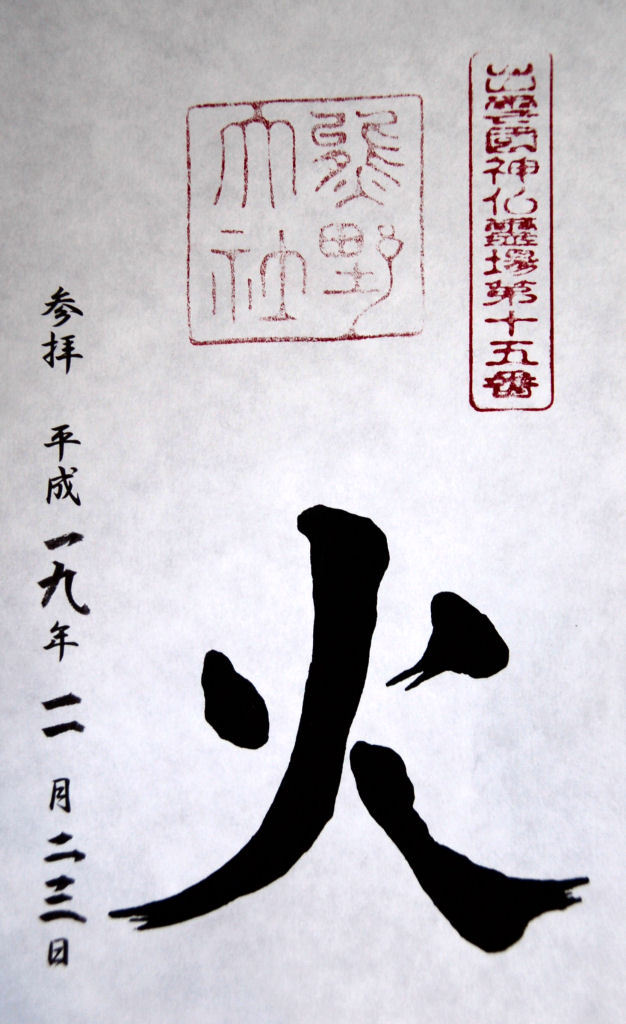 出雲國神仏靈場第十五番
熊野
大社
火
参拝 平成一九年一一月二三日